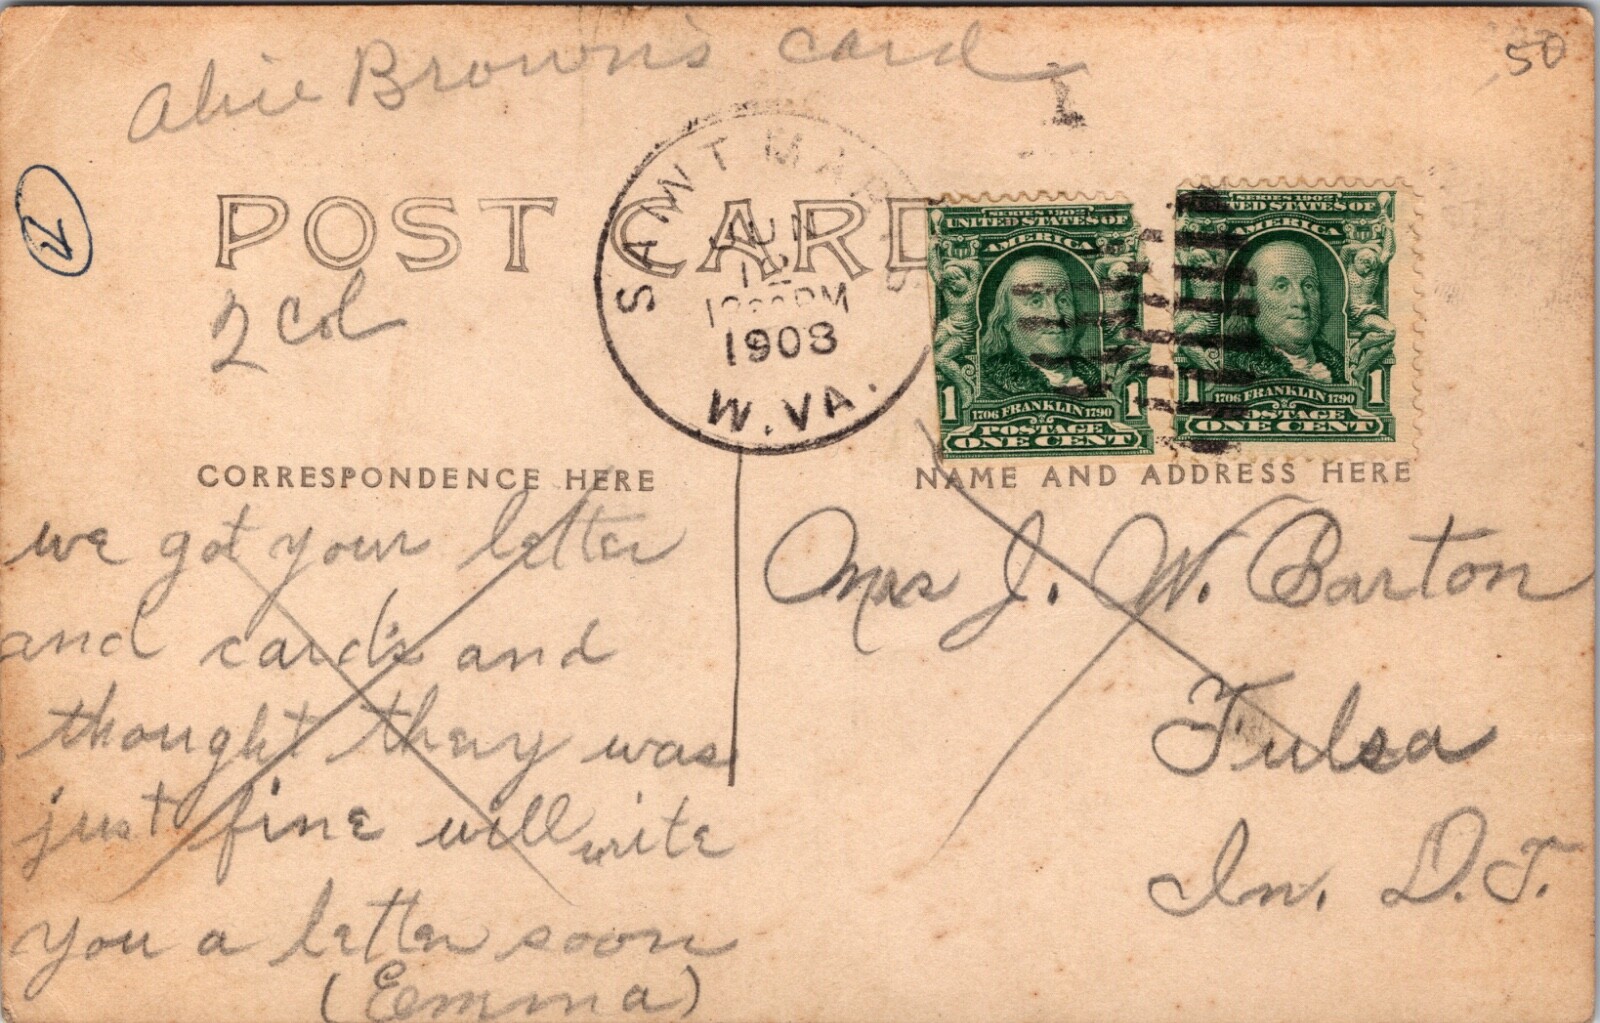 Alice Brown's card
50
POST CARD
SAINT MARYS
JUN
12
1908
W. VA.
SERIES 1902
UNITED STATES OF
AMERICA
1 1706 FRANKLIN 1790 1
POSTAGE
ONE CENT
SERIES 1902
UNITED STATES OF
AMERICA
1 1706 FRANKLIN 1790 1
POSTAGE
ONE CENT
2 col
CORRESPONDENCE HERE
NAME AND ADDRESS HERE
we got your letter
and card's and
thought they was
just fine will write
you a letter soon
(Emma)
Mrs J. W. Barton
Tulsa
In. D. T.